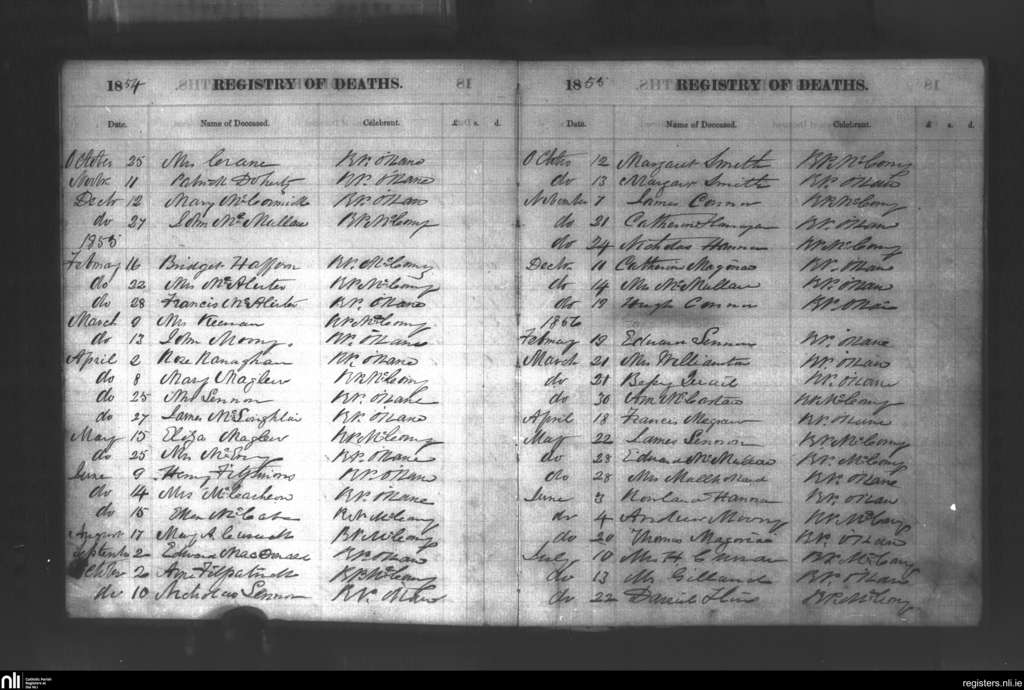 1854 REGISTRY OF DEATHS. 18
Date. Name of Deceased. Celebrant. £ s. d.
October 25 Mrs Crane Rv. O'Kane
Novbr 11 Patrick Doherty Rv. O'Kane
Decbr 12 Mary McCormick Rv. O'Kane
do 27 John McMullan Rv McComy
1855
February 16 Bridget Rv. McComy
do 22 Mrs McAlister Rv McComy
do 28 Francis McAlister Rv. O'Kane
March 9 Mrs Keenan Rv McComy
do 13 John Morny. Rv. O'Kane
April 2 Rose Kanaghan Rv. O'Kane
do 8 Mary Maglew Rv McComy
do 25 Mrs Lennon Rv. O'Kane
do 27 James McLoughlin Rv. O'Kane
May 15 Eliza Maglew Rv McComy
do 25 Mrs Rv. O'Kane
June 9 Henry Fitzsimons Rv. O'Kane
do 14 Mrs McCeachern Rv. O'Kane
do 15 McCabe Rv McComy
August 17 Mary A. Cusack Rv. McComy
September 2 Edward MacDonald Rv. O'Kane
October 2 Ann Fitzpatrick Rv McComy
do 10 Nicholas Lennon Rv. O'Kane
1855 REGISTRY OF DEATHS. 18
Date. Name of Deceased. Celebrant. £ s. d.
October 12 Margaret Smith Rv McComy
do 13 Margaret Smith Rv. O'Kane
November 7 James Connor Rv McComy
do 21 Catherine Rv. O'Kane
do 24 Nicholas Hannon Rv McComy
Decbr 11 Catherine Rv. O'Kane
do 14 Mrs McMullan Rv. O'Kane
do 19 Hugh Connor Rv. O'Kane
1856
February 19 Edward Lennon Rv. O'Kane
March 21 Mrs Williamson Rv. O'Kane
do 21 Betsy Quail Rv. O'Kane
do 30 Ann Rv McComy
April 18 Francis Magrew Rv. O'Kane
May 22 James Lennon Rv McComy
do 23 Edward McMullan Rv. McComy
do 28 Mrs Mulholland Rv. O'Kane
June 3 Hannon Rv. O'Kane
do 4 Andrew Morny Rv McComy
do 20 Thomas Rv. O'Kane
July 10 Mrs H Rv. McComy
do 13 Mr Gilland Rv. O'Kane
do 22 Daniel Rv. McComy
nli Catholic Parish Registers at the NLI
registers.nli.ie